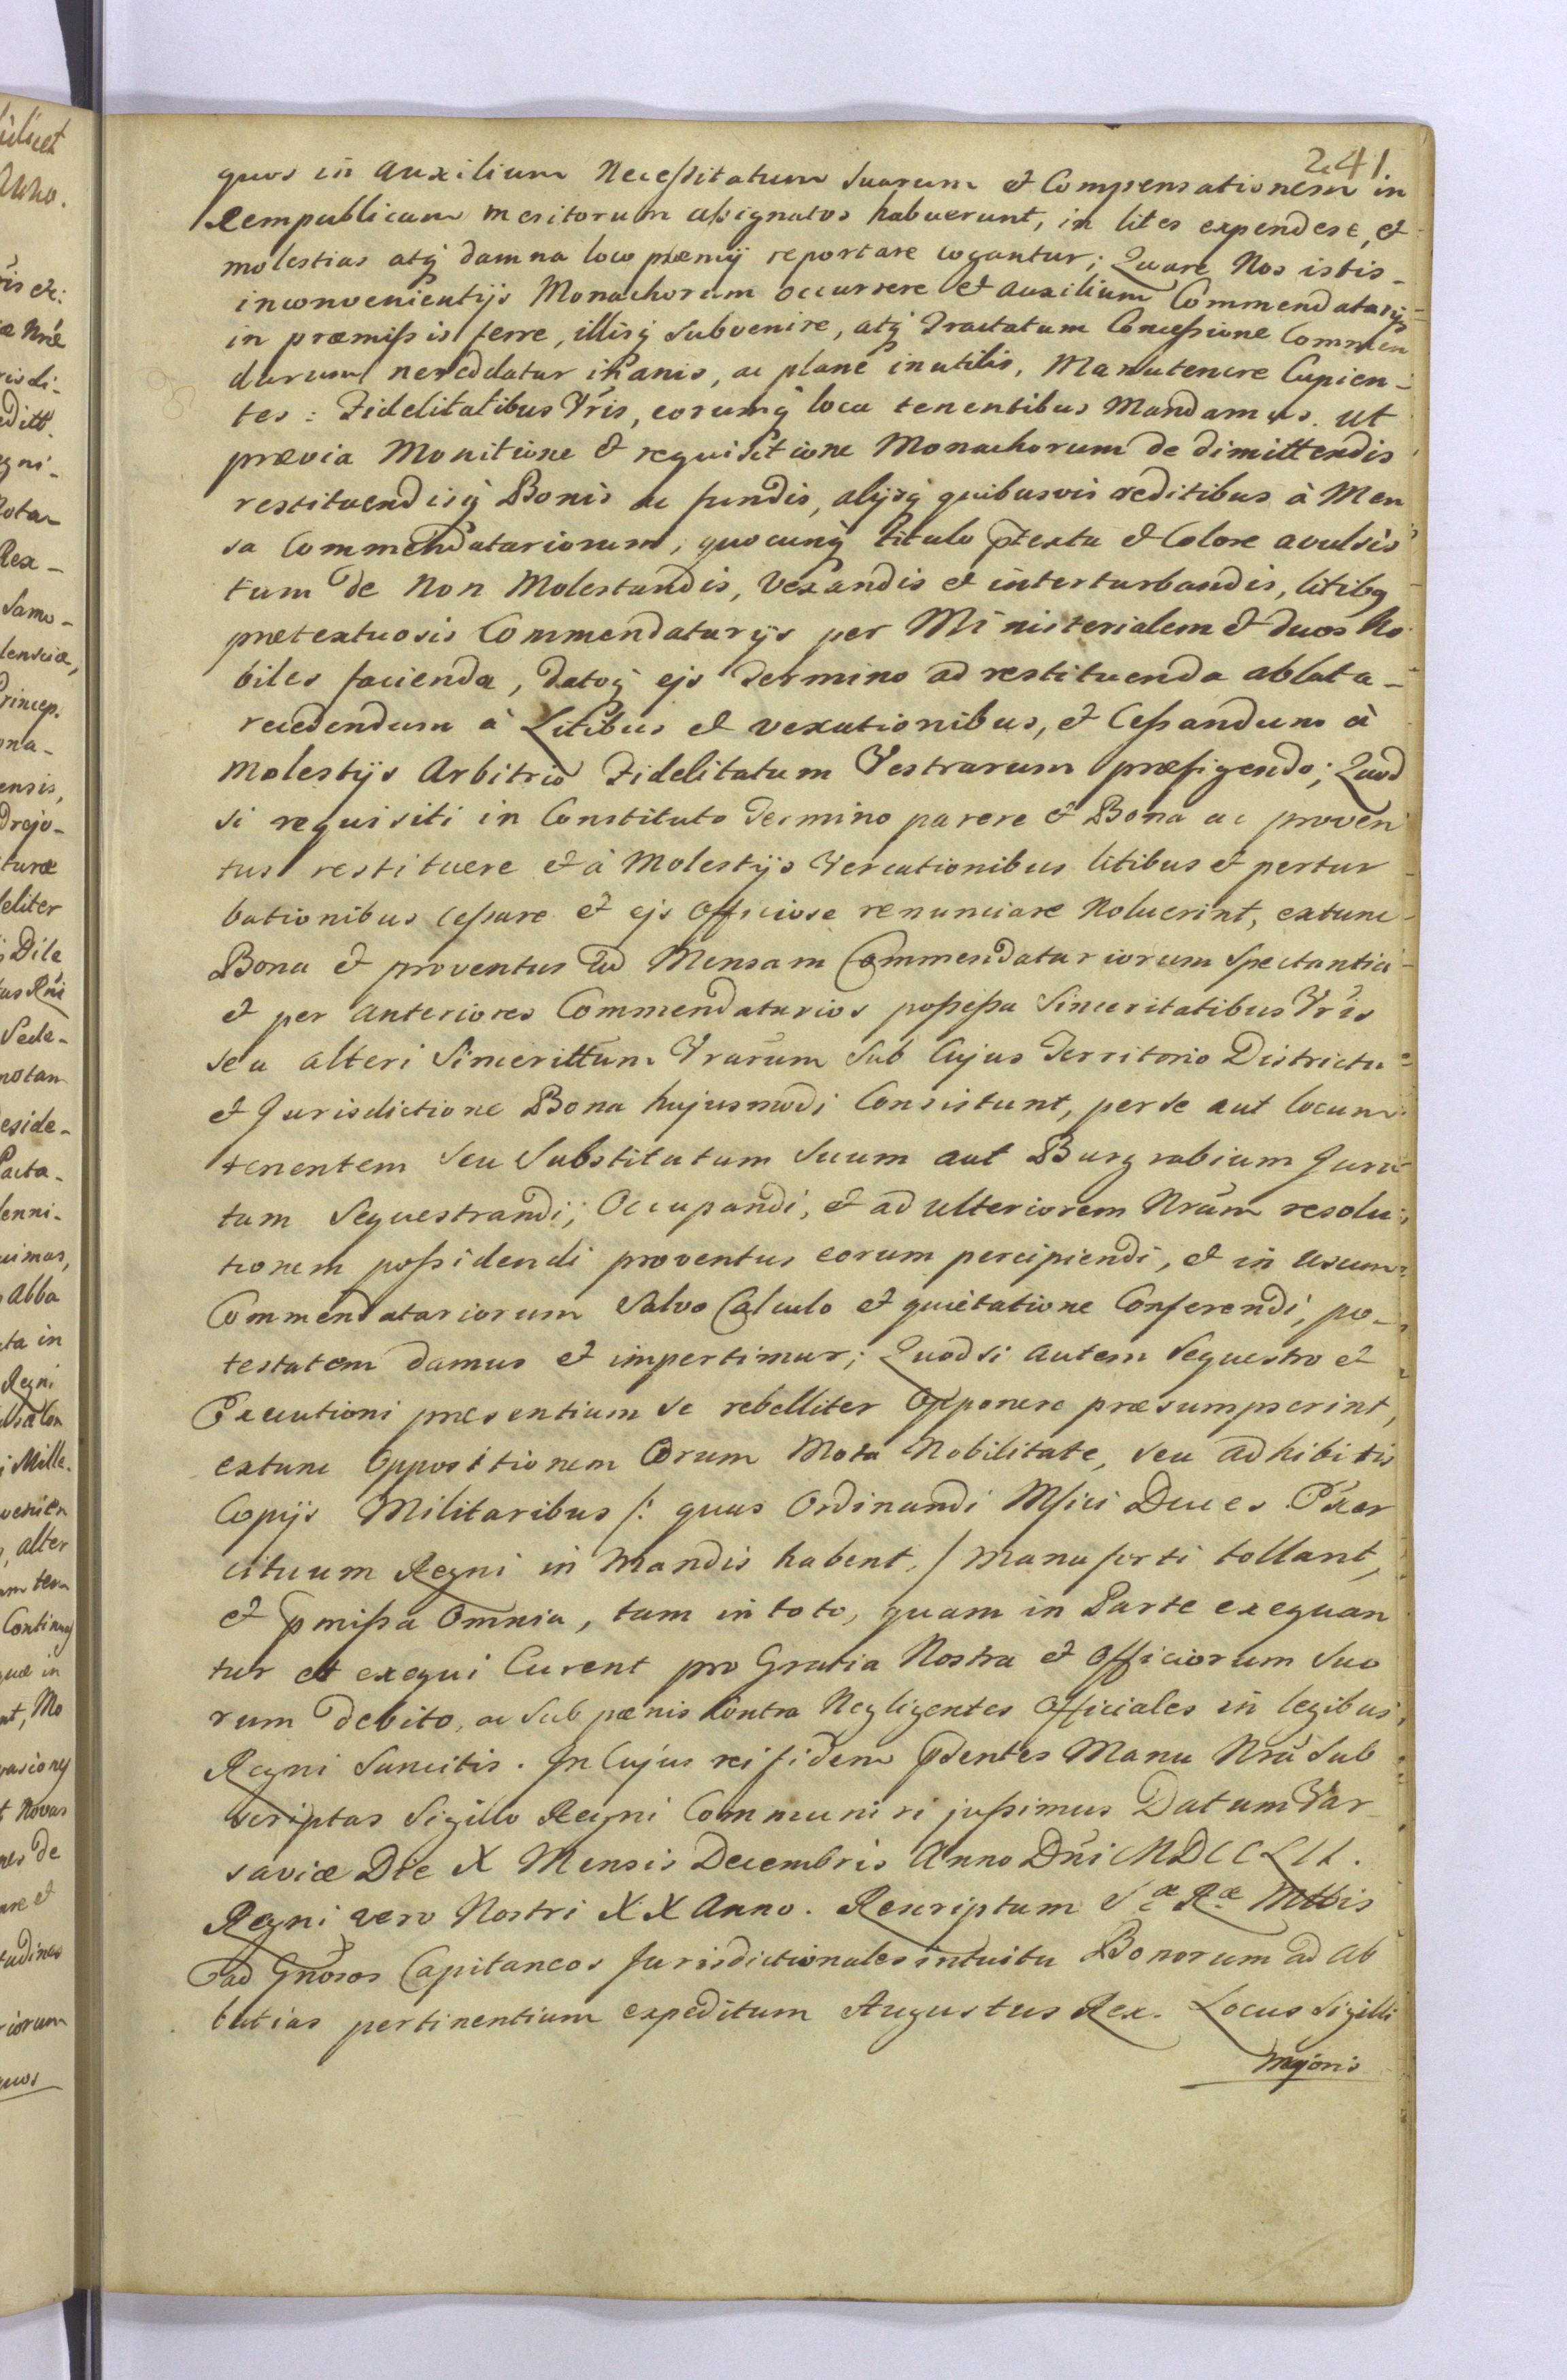 241
quos in auxilium Necessitatum suarum et Compensationem in
Rempublicam meritorum assignatos habuerunt, in lites expendere, et
molestias atq̃ damna loco præmij reportare cogantur; Quare Nos istis-
inconvenientijs Monachorum occurrere et auxilium Commendatarijs
in præmissis ferre, illisq̃ subvenire, atq̃ Tractatum Concessione Commen
darum ne reddatur inanis, ac planè inutilis, Manutenere Cupien-
tes: Fidelitatibus Vr̃is, eorumq̃ loca tenentibus Mandamus. ut
prævia Monitione et requisitione Monachorum de dimittendis
restituendisq̃ Bonis ac fundis, alijsq̃ quibusvis reditibus à Men
sa Commendatariorum, quocunq̃ titulo p̃textu et Colore avulsis
tum de Non Molestandis, Vexandis et interturbandis, litibq
prætextuosis Commendatarijs per Ministerialem et duos No
biles facienda, datoq̃ ejs Termino ad restituenda ablata-
recedendum à Litibus et vexationibus, et Cessandum à
Molestijs Arbitrio Fidelitatum Vestrarum præfigendo; Quod
si requisiti in Constituto Termino parere et Bona ac proven
tus restituere et à Molestijs Vexcationibus litibus et pertur
bationibus cessare et ejs officiose renunciare Noluerint, extunc
Bona et proventus ad Mensam Commendatariorum Spectantia
et per anteriores Commendatarios possessa Sinceritatibus Vr̃is
seu alteri Sincerittum Vrarũm sub Cujus Territorio Districtu
et Jurisdictione Bona hujusmodi Consistunt, per se aut locum
tenentem seu Substitutum suum aut Burgrabium Jura
tum Sequestrandi, Occupandi, et ad ulteriorem Nrãm resolu
tionem possidendi proventus eorum percipiendi, et in usum
Commendatariorum Salvo Calculo et quietatione Conferendi, po-
testatem damus et impertimur; Quodsi autem Sequestro et
Executioni præsentium se rebelliter Opponere præsumpserint,
extunc Oppositionem Eorum Mota Nobilitate, seu adhibitis
Copijs Militaribus /: quas Ordinandi Mfici Duces Exer
cituum Regni in Mandis habent, / manu forti tollant,
et p̃missa Omnia, tam in toto, quam in Parte exequan
tur et exequi Curent pro Gratia Nostra et Officiorum Suo
rum debito, ac sub pænis contra Negligentes Officiales in legibus
Regni Sancitis. In Cujus rei fidem p̃dentes Manu Nrã Sub
scriptas Sigillo Regni Communiri jussimus Datum Var
saviæ Die X Mensis Decembris Anno Dñi MDCCLII.
Regni vero Nostri XX Anno. Rescriptum Sæ Ræ Mttis
ad Gnõsos Capitaneos Jurisdictionales intuitu Bonorum ad Ab
batias pertinentium expeditum Augustus Rex. Locus Sigilli
Majoris